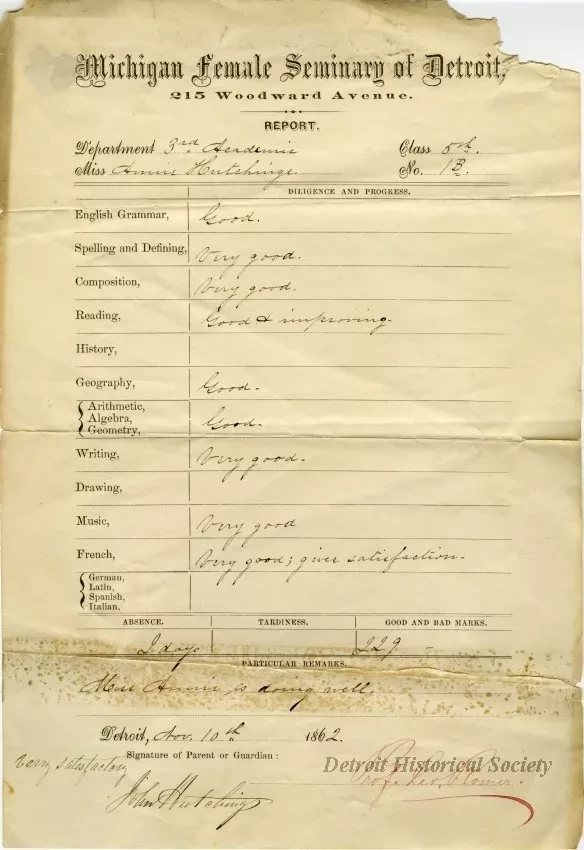 Michigan Female Seminary of Detroit,
215 Woodward Avenue.
REPORT.
Department 3rd Academic Class 5th.
Miss Annie Hutchings. No. 1B.
DILIGENCE AND PROGRESS.
English Grammar, Good.
Spelling and Defining, Very good.
Composition, Very good.
Reading, Good & improving.
History,
Geography, Good.
Arithmetic,
Algebra, Good.
Geometry,
Writing, Very good.
Drawing,
Music, Very good
French, Very good; gives satisfaction.
German,
Latin,
Spanish,
Italian,
ABSENCE. TARDINESS. GOOD AND BAD MARKS.
2 days 229 –
PARTICULAR REMARKS.
Miss Annie is doing well.
Detroit, Nov. 10th 1862.
Signature of Parent or Guardian:
Verry satisfactory
John Hutchings
Detroit Historical Society
Prof.